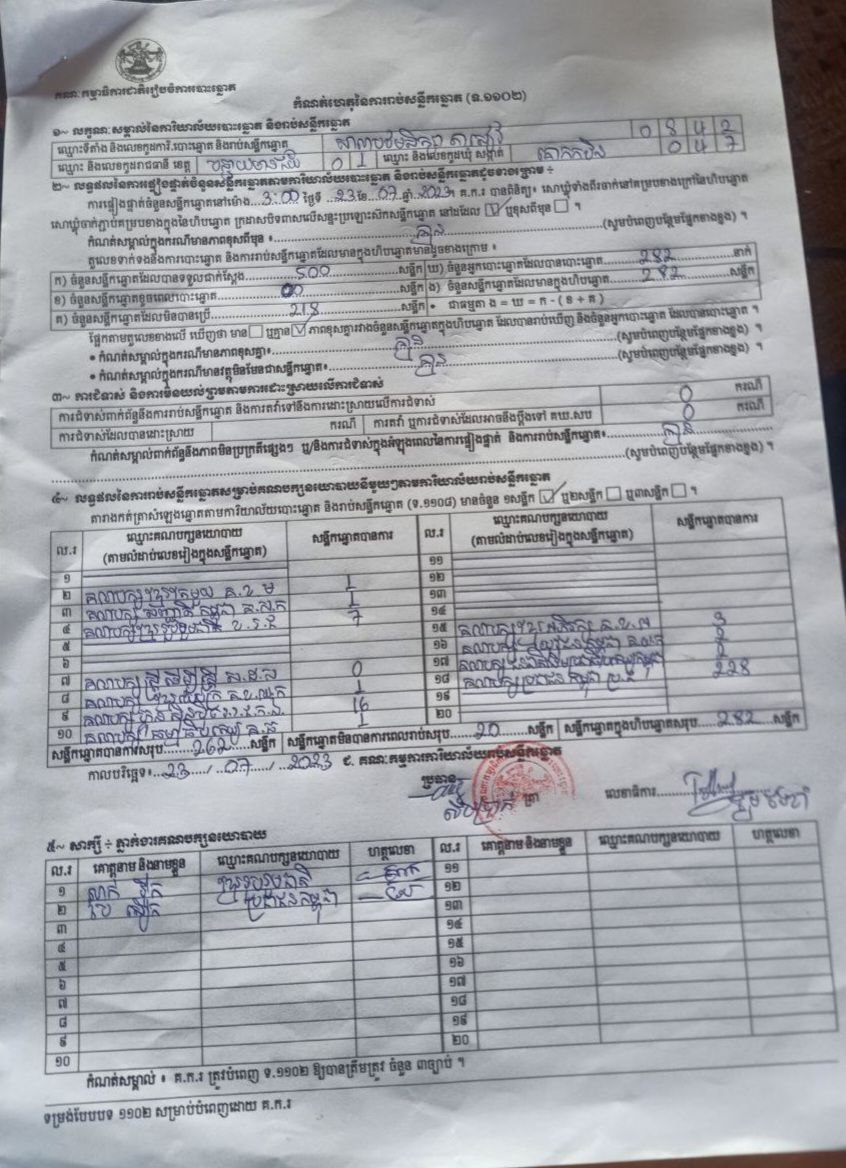 គណៈកម្មាធិការជាតិរៀបចំការបោះឆ្នោត
កំណត់ហេតុនៃការរាប់សន្លឹកឆ្នោត (ទ.១១០២)
១~ លក្ខណៈសម្គាល់នៃការិយាល័យបោះឆ្នោត និងរាប់សន្លឹកឆ្នោត
ឈ្មោះទីតាំង និងលេខកូដការិ.បោះឆ្នោត និងរាប់សន្លឹកឆ្នោត 0 8 4 2
ឈ្មោះ និងលេខកូដរាជធានី ខេត្ត បន្ទាយមានជ័យ 0 1 ឈ្មោះ និងលេខកូដឃុំ សង្កាត់ 0 4 7
២~ លទ្ធផលនៃការផ្ទៀងផ្ទាត់ចំនួនសន្លឹកឆ្នោតតាមការិយាល័យបោះឆ្នោត និងរាប់សន្លឹកឆ្នោតដូចខាងក្រោម ÷
ការផ្ទៀងផ្ទាត់ចំនួនសន្លឹកឆ្នោតនៅម៉ោង 3:00 ថ្ងៃទី 23 ខែ 07 ឆ្នាំ 2023។ គ.ក.រ បានពិនិត្យ៖ សោឃ្លុំទាំងពីរចាក់នៅគម្របខាងក្រៅនៃហិបឆ្នោត
សោឃ្លុំចាក់ភ្ជាប់គម្របខាងក្នុងនៃហិបឆ្នោត ក្រដាសបិទពាសលើសន្ទះប្រឡោះស៊កសន្លឹកឆ្នោត នៅដដែល ☑ ឬខុសពីមុន ☐ ។
កំណត់សម្គាល់ក្នុងករណីមានភាពខុសពីមុន ៖ គ្មាន (សូមបំពេញបន្ថែមផ្នែកខាងខ្នង) ។
តួលេខទាក់ទងនឹងការបោះឆ្នោត និងការរាប់សន្លឹកឆ្នោតដែលមានក្នុងហិបឆ្នោតមានដូចខាងក្រោម ៖
ក) ចំនួនសន្លឹកឆ្នោតដែលបានទទួលជាក់ស្តែង 500 សន្លឹក ឃ) ចំនួនអ្នកបោះឆ្នោតដែលបានបោះឆ្នោត 282 នាក់
ខ) ចំនួនសន្លឹកឆ្នោតខូចពេលបោះឆ្នោត 00 សន្លឹក ង) ចំនួនសន្លឹកឆ្នោតដែលមានក្នុងហិបឆ្នោត 282 សន្លឹក
គ) ចំនួនសន្លឹកឆ្នោតដែលមិនបានប្រើ 218 សន្លឹក • ជាធម្មតា ង = ឃ = ក - ( ខ + គ )
ផ្អែកតាមតួលេខខាងលើ ឃើញថា មាន ☐ ឬគ្មាន ☑ ភាពខុសគ្នារវាងចំនួនសន្លឹកឆ្នោតក្នុងហិបឆ្នោត ដែលបានរាប់ឃើញ និងចំនួនអ្នកបោះឆ្នោត ដែលបានបោះឆ្នោត ។
• កំណត់សម្គាល់ក្នុងករណីមានភាពខុសគ្នា៖ គ្មាន (សូមបំពេញបន្ថែមផ្នែកខាងខ្នង) ។
• កំណត់សម្គាល់ក្នុងករណីមានវត្ថុមិនមែនជាសន្លឹកឆ្នោត៖ គ្មាន (សូមបំពេញបន្ថែមផ្នែកខាងខ្នង) ។
៣~ ការជំទាស់ និងការមិនយល់ព្រមតាមការដោះស្រាយលើការជំទាស់
ការជំទាស់ពាក់ព័ន្ធនឹងការរាប់សន្លឹកឆ្នោត និងការតវ៉ាទៅនឹងការដោះស្រាយលើការជំទាស់ 0 ករណី
ការជំទាស់ដែលបានដោះស្រាយ ករណី ការតវ៉ា ឬការជំទាស់ដែលអាចនឹងប្តឹងទៅ គឃ.សប 0 ករណី
កំណត់សម្គាល់ពាក់ព័ន្ធនឹងភាពមិនប្រក្រតីផ្សេងៗ ឬ/និងការជំទាស់ក្នុងអំឡុងពេលនៃការផ្ទៀងផ្ទាត់ និងការរាប់សន្លឹកឆ្នោត៖ គ្មាន
(សូមបំពេញបន្ថែមផ្នែកខាងខ្នង) ។
៤~ លទ្ធផលនៃការរាប់សន្លឹកឆ្នោតសម្រាប់គណបក្សនយោបាយនីមួយៗតាមការិយាល័យរាប់សន្លឹកឆ្នោត
តារាងកត់ត្រាសំឡេងឆ្នោតតាមការិយាល័យបោះឆ្នោត និងរាប់សន្លឹកឆ្នោត (ទ.១១០៨) មានចំនួន ១សន្លឹក ☑ ឬ២សន្លឹក ☐ ឬ៣សន្លឹក ☐ ។
ល.រ ឈ្មោះគណបក្សនយោបាយ (តាមលំដាប់លេខរៀងក្នុងសន្លឹកឆ្នោត) សន្លឹកឆ្នោតបានការ ល.រ ឈ្មោះគណបក្សនយោបាយ (តាមលំដាប់លេខរៀងក្នុងសន្លឹកឆ្នោត) សន្លឹកឆ្នោតបានការ
១ ១១
២ គណបក្សខ្មែរតែមួយ គ.ខ.ម 1 ១២
៣ គណបក្ស 1 ១៣
៤ គណបក្សខ្មែររួបរួមជាតិ ខ.រ.ជ 7 ១៤
៥ ១៥ គណបក្សខ្មែរអភិវឌ្ឍ 3
៦ ១៦ គណបក្ស 2
៧ គណបក្សស្ត្រីដើម្បីស្ត្រី ស.ដ.ស 0 ១៧ គណបក្ស 2
៨ គណបក្ស 1 ១៨ គណបក្សប្រជាជនកម្ពុជា 228
៩ គណបក្សហ៊្វុនស៊ិនប៉ិច 16 ១៩
១០ គណបក្ស 1 ២០
សន្លឹកឆ្នោតបានការសរុប 262 សន្លឹក សន្លឹកឆ្នោតមិនបានការពេលរាប់សរុប 20 សន្លឹក សន្លឹកឆ្នោតក្នុងហិបឆ្នោតសរុប 282 សន្លឹក
កាលបរិច្ឆេទ៖ 23 / 07 / 2023 ជ. គណៈកម្មការការិយាល័យរាប់សន្លឹកឆ្នោត
ប្រធាន ត្រា លេខាធិការ
៥~ សាក្សី ÷ ភ្នាក់ងារគណបក្សនយោបាយ
ល.រ គោត្តនាម និងនាមខ្លួន ឈ្មោះគណបក្សនយោបាយ ហត្ថលេខា ល.រ គោត្តនាម និងនាមខ្លួន ឈ្មោះគណបក្សនយោបាយ ហត្ថលេខា
១ ខ្មែររួបរួមជាតិ ១១
២ ប្រជាជនកម្ពុជា ១២
៣ ១៣
៤ ១៤
៥ ១៥
៦ ១៦
៧ ១៧
៨ ១៨
៩ ១៩
១០ ២០
កំណត់សម្គាល់ ៖ គ.ក.រ ត្រូវបំពេញ ទ.១១០២ ឱ្យបានត្រឹមត្រូវ ចំនួន ៣ច្បាប់ ។
ទម្រង់បែបបទ ១១០២ សម្រាប់បំពេញដោយ គ.ក.រ